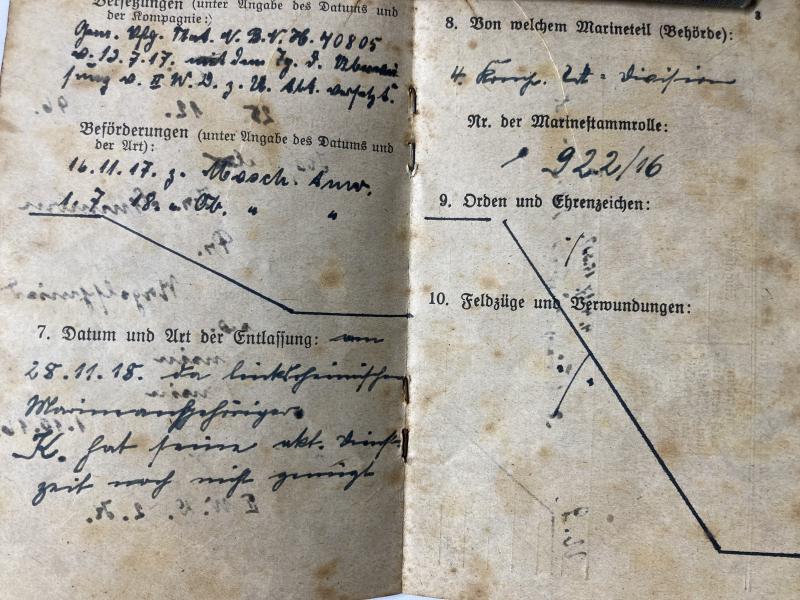 Versetzungen (unter Angabe des Datums und
der Kompagnie:)
Gem. Vfg. Nat. V. B. V. H. 40805
v. 12.7.17. mit dem Tg. d.
v. II W. D. z. U. Abt. versetzt.
Beförderungen (unter Angabe des Datums und
der Art):
16.11.17. z. Masch. Anw.
1. 7. 18. " Ob. " "
7. Datum und Art der Entlassung: am
28.11.18. da linksrheinischer
Marineangehöriger.
K. hat seine akt. Dienst-
zeit noch nicht genügt
3
8. Von welchem Marineteil (Behörde):
4. Komp. Division
Nr. der Marinestammrolle:
922/16
9. Orden und Ehrenzeichen:
10. Feldzüge und Verwundungen: